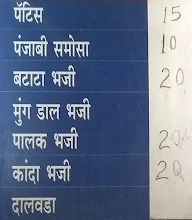 पॅटिस 15
पंजाबी समोसा 10
बटाटा भजी 20
मुंग डाल भजी
पालक भजी 20
कांदा भजी 20
दालवडा